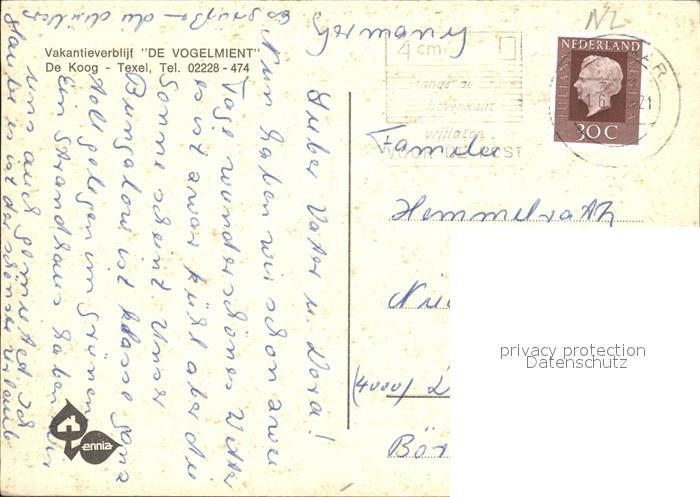 Vakantieverblijf "DE VOGELMIENT"
De Koog - Texel, Tel. 02228 - 474
Lieber Vater u. Dora!
Nun haben wir schon zwei
Tage wunderschönes Wetter
es ist zwar kühl aber die
Sonne scheint. Unser
Bungalow ist klasse ganz
toll gelegen im Grünen
Ein Strandhaus haben wir
uns auch gemietet. Ich
glaube es ist der schönste Urlaub
Es grüßen die
Germany
NL
4 cm
langs de
bovenkant
vrijlaten
VOOR DE POST
NEDERLAND
JULIANA REGINA
30 C
Familie
Hemmelrath
(4000)
ennia
privacy protection
Datenschutz